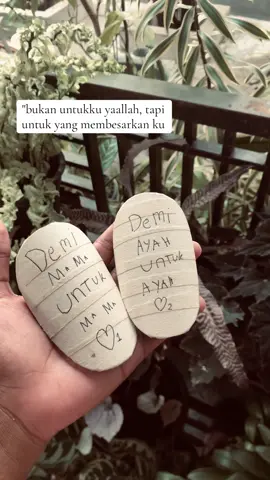 "bukan untukku yaallah, tapi
untuk yang membesarkan ku
DemI
MaMa
UNTUK
MaMa
♡1
DemI
AYAH
UNTUK
AYAH
♡2